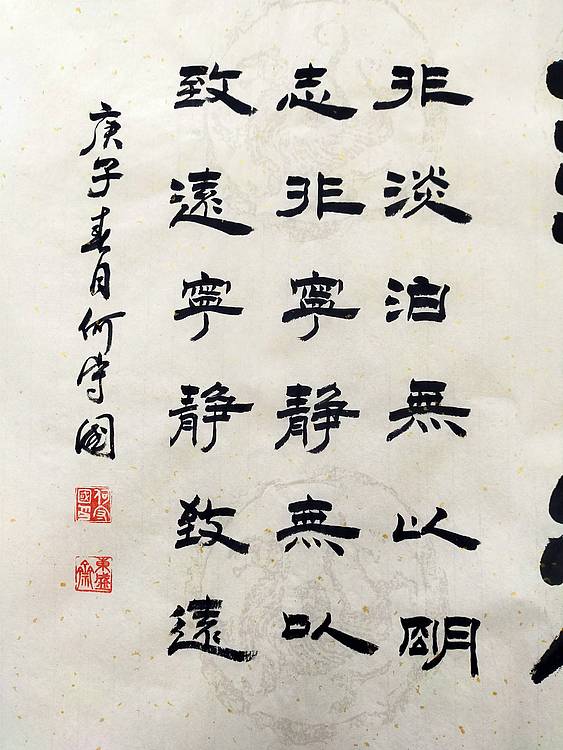 非淡泊無以明
志非寧靜無以
致遠寧靜致遠
庚子春月何守國